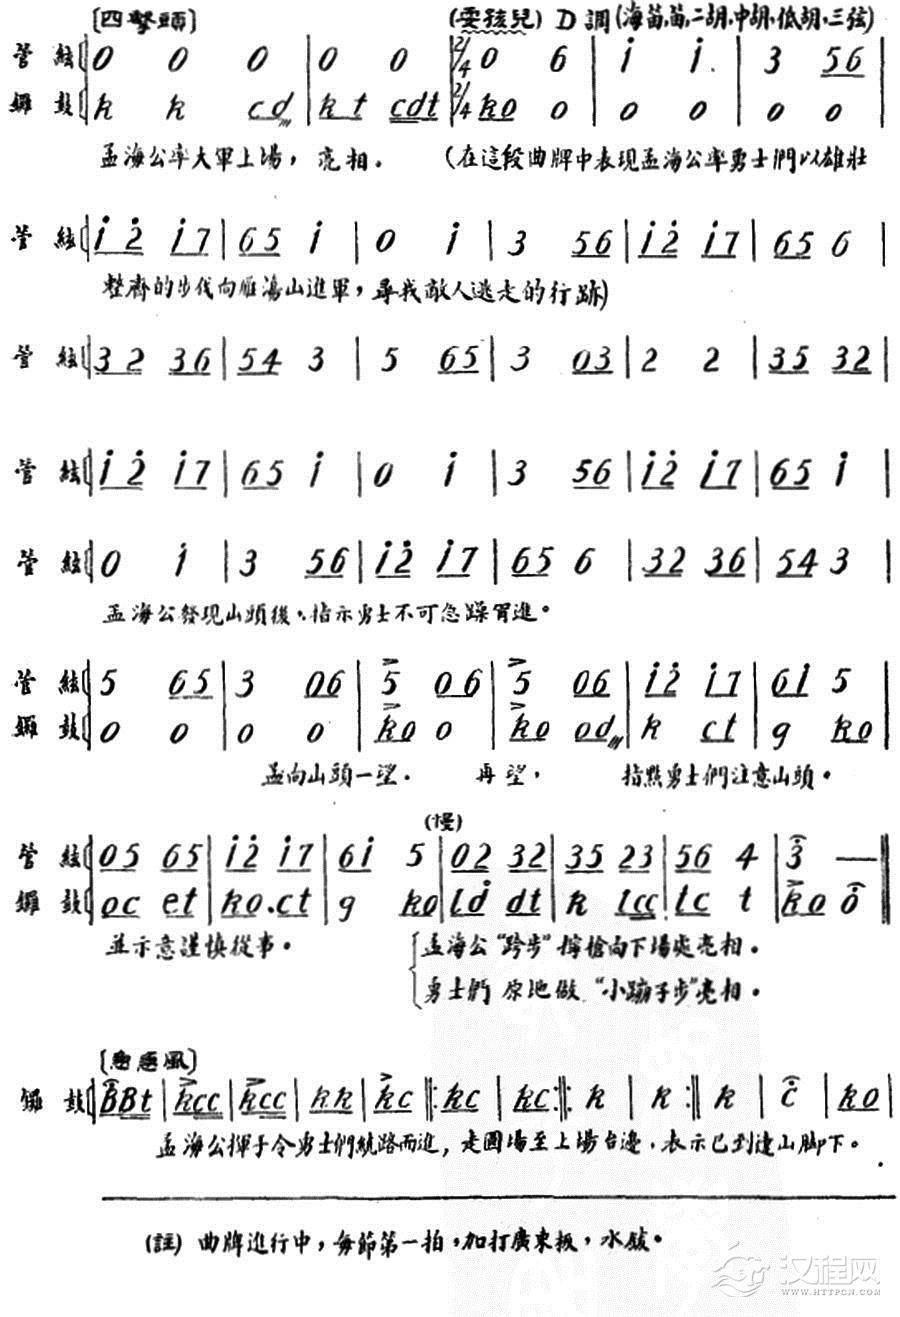 〔四擊頭〕 (耍孩兒) D調 (海笛,笛,二胡,中胡,低胡,三弦)
管絃 0 0 0 | 0 0 | 2/4 0 6 | i i. | 3 56
鑼鼓 k k cd | kt cdt | 2/4 ko 0 | 0 0 | 0 0
孟海公率大軍上場，亮相。 (在這段曲牌中表現孟海公率勇士們以雄壯
管絃 i2 i7 | 65 i | 0 i | 3 56 | i2 i7 | 65 6 |
整齊的步伐向雁蕩山進軍，尋找敵人逃走的行跡)
管絃 32 36 | 54 3 | 5 65 | 3 03 | 2 2 | 35 32 |
管絃 i2 i7 | 65 i | 0 i | 3 56 | i2 i7 | 65 i |
管絃 0 i | 3 56 | i2 i7 | 65 6 | 32 36 | 54 3 |
孟海公發現山頭後，指示勇士不可急躁冒進。
管絃 5 65 | 3 06 | 5 06 | 5 06 | i2 i7 | 6i 5 |
鑼鼓 0 0 | 0 0 | ko 0 | ko od | k ct | g ko |
孟向山頭一望. 再望, 指點勇士們注意山頭。
(慢)
管絃 05 65 | i2 i7 | 6i 5 | 02 32 | 35 23 | 56 4 | 3 — ‖
鑼鼓 oc et | ko.ct | g ko | ld dt | k lcc | lc t | ko 0 ‖
並示意謹慎從事。 孟海公“跨步”擰槍向下場處亮相。
勇士們 原地做 “小蹦子步”亮相。
風〕
鑼鼓 BBt | kcc | kcc | kk | kc ‖: kc | kc :‖: k | k :‖ k | c | ko |
孟海公揮手令勇士們繞路而進，走圓場至上場台邊，表示已到達山脚下。
(註) 曲牌進行中，每節第一拍，加打廣東板，水鈸。
汉程网
WWW.HTTPCN.COM